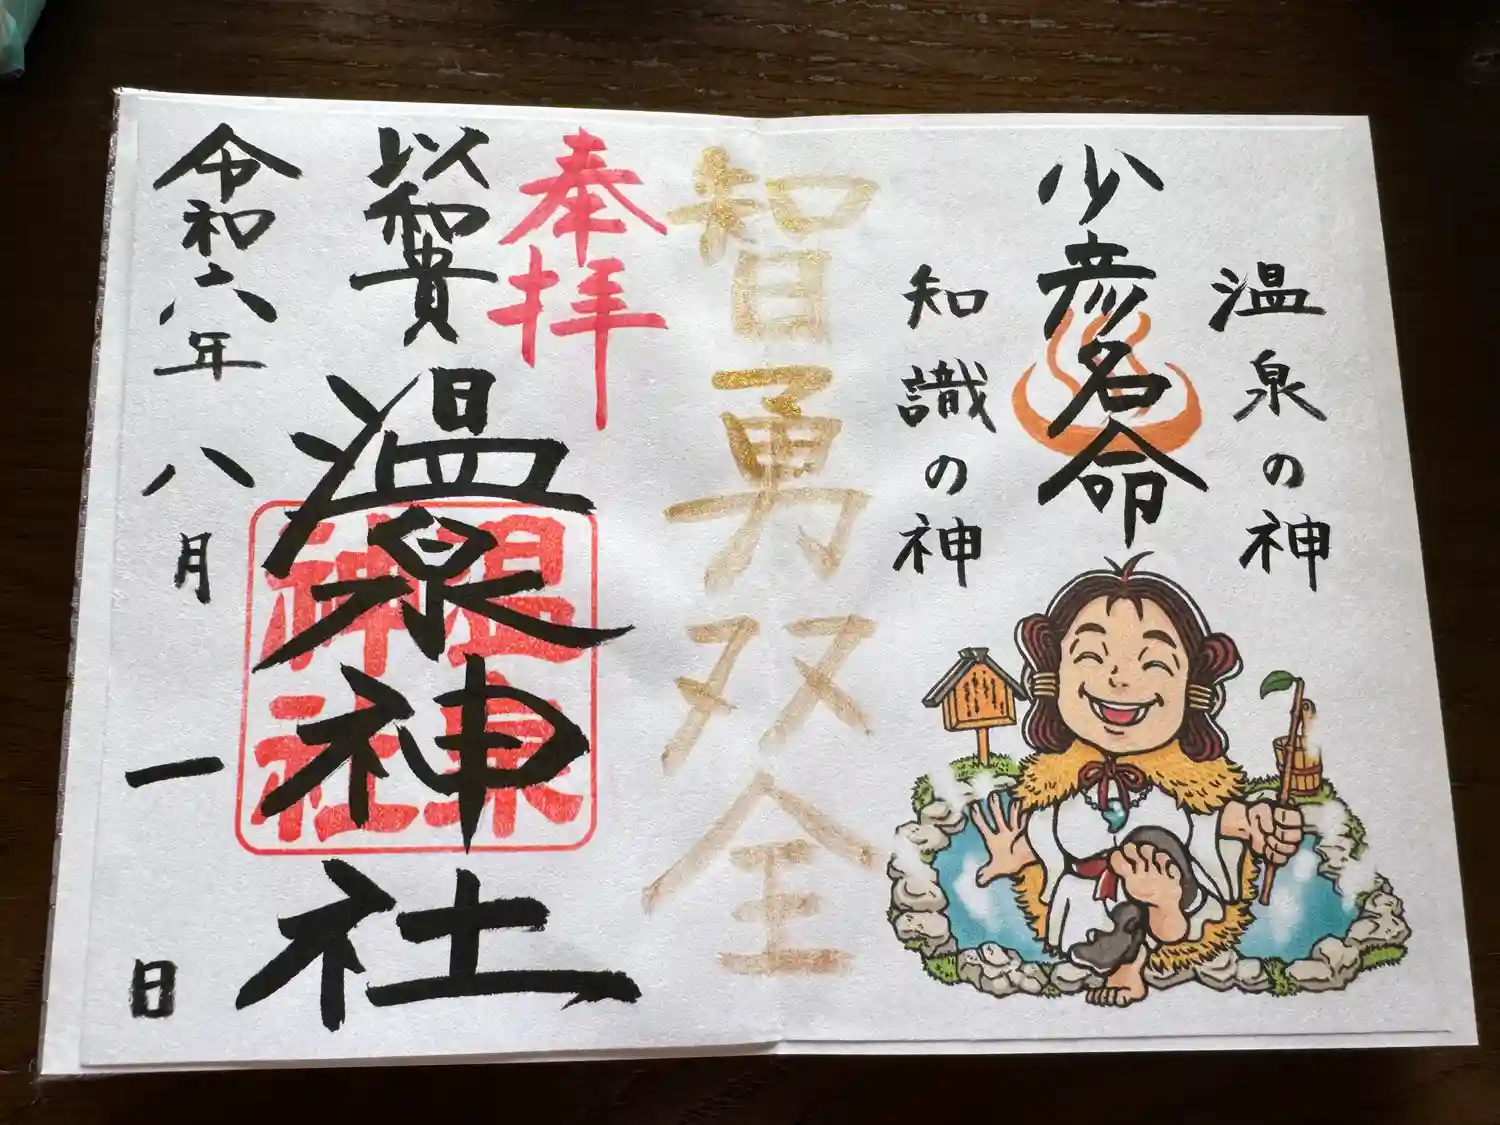 温泉の神
少彦名命
知識の神
智勇双全
奉拝
以和貴
温泉神社
温泉
神社
令和六年八月一日